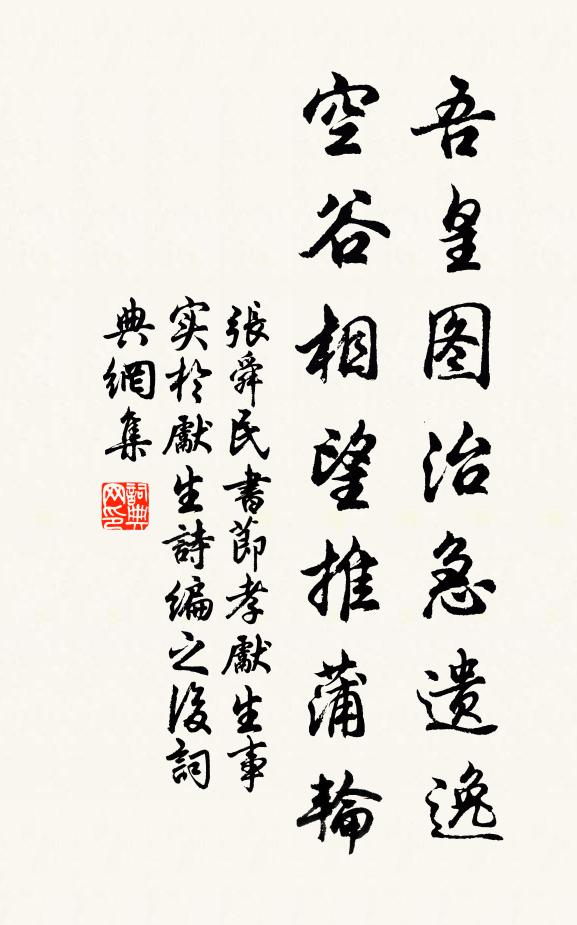 吾皇图治急遗逸
空谷相望推蒲輪
張舜民書節孝獻生事
实於獻生詩编之後詞
典網集
詞典网印